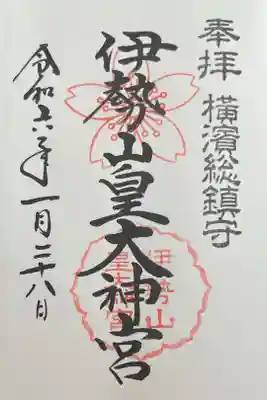 奉拝 横濱総鎮守
伊勢山皇大神宮
伊勢山
皇大神宮
令和六年一月二十八日